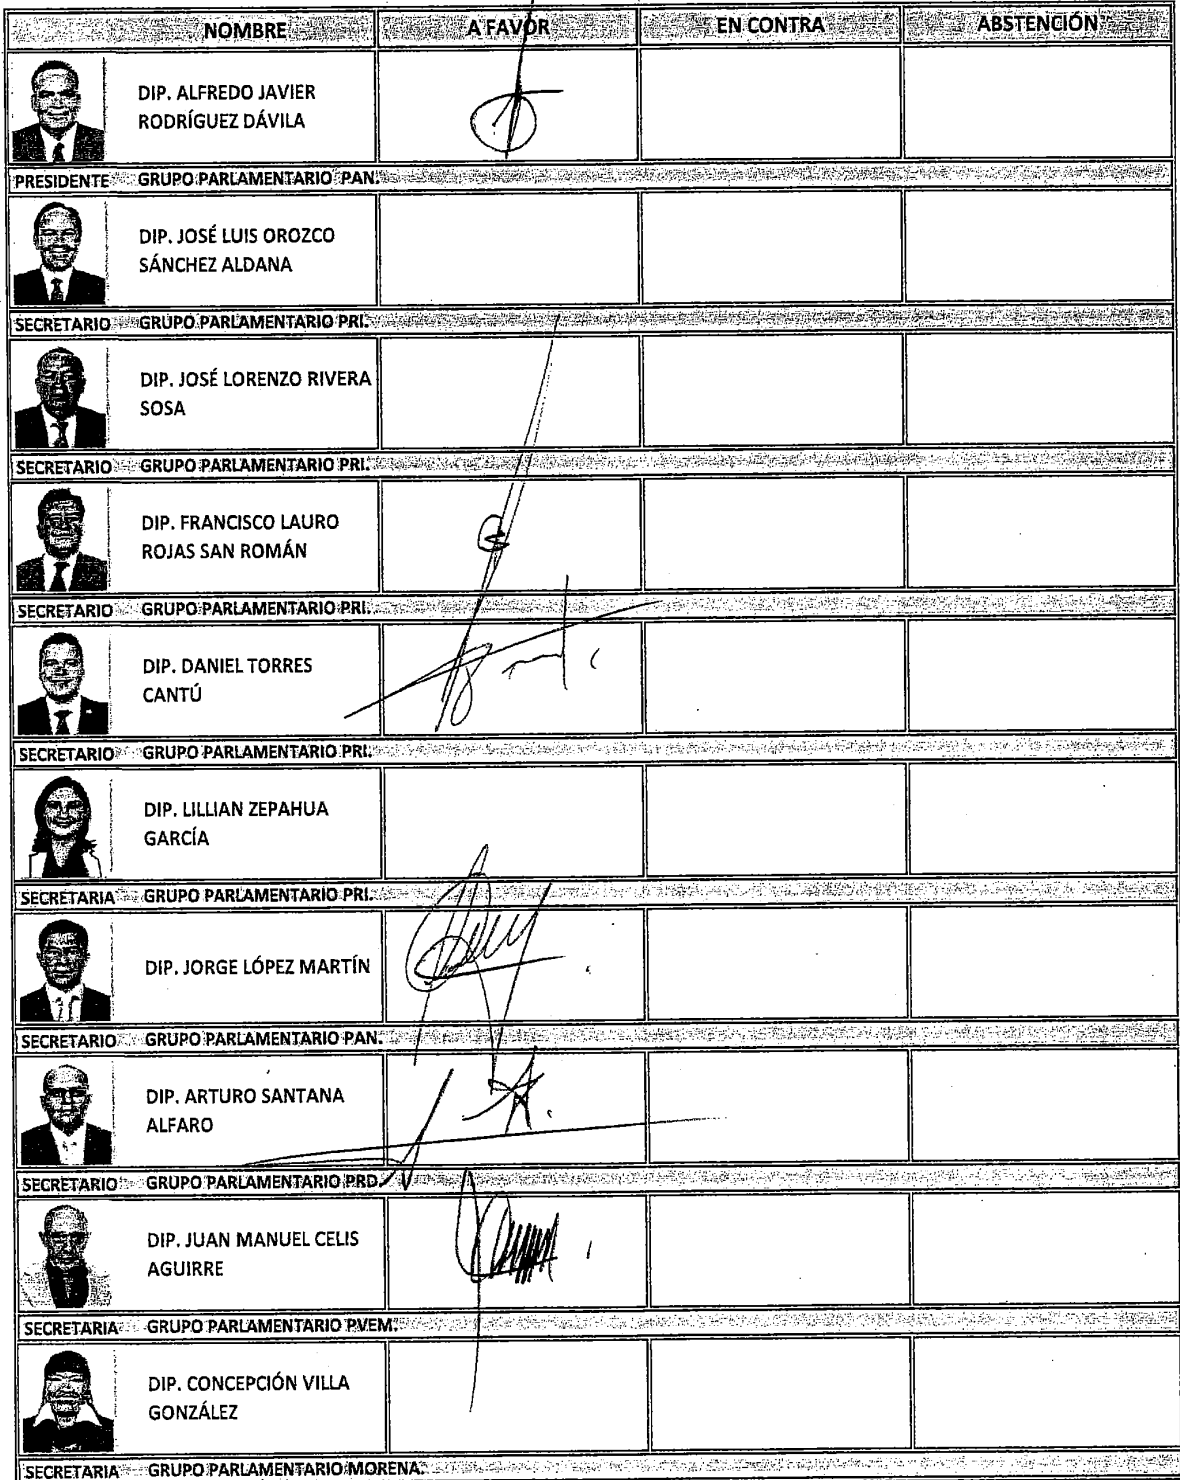 NOMBRE A FAVOR EN CONTRA ABSTENCIÓN
DIP. ALFREDO JAVIER
RODRÍGUEZ DÁVILA
PRESIDENTE GRUPO PARLAMENTARIO PAN.
DIP. JOSÉ LUIS OROZCO
SÁNCHEZ ALDANA
SECRETARIO GRUPO PARLAMENTARIO PRI.
DIP. JOSÉ LORENZO RIVERA
SOSA
SECRETARIO GRUPO PARLAMENTARIO PRI.
DIP. FRANCISCO LAURO
ROJAS SAN ROMÁN
SECRETARIO GRUPO PARLAMENTARIO PRI.
DIP. DANIEL TORRES
CANTÚ
SECRETARIO GRUPO PARLAMENTARIO PRI.
DIP. LILLIAN ZEPAHUA
GARCÍA
SECRETARIA GRUPO PARLAMENTARIO PRI.
DIP. JORGE LÓPEZ MARTÍN
SECRETARIO GRUPO PARLAMENTARIO PAN.
DIP. ARTURO SANTANA
ALFARO
SECRETARIO GRUPO PARLAMENTARIO PRD.
DIP. JUAN MANUEL CELIS
AGUIRRE
SECRETARIA GRUPO PARLAMENTARIO PVEM.
DIP. CONCEPCIÓN VILLA
GONZÁLEZ
SECRETARIA GRUPO PARLAMENTARIO MORENA.